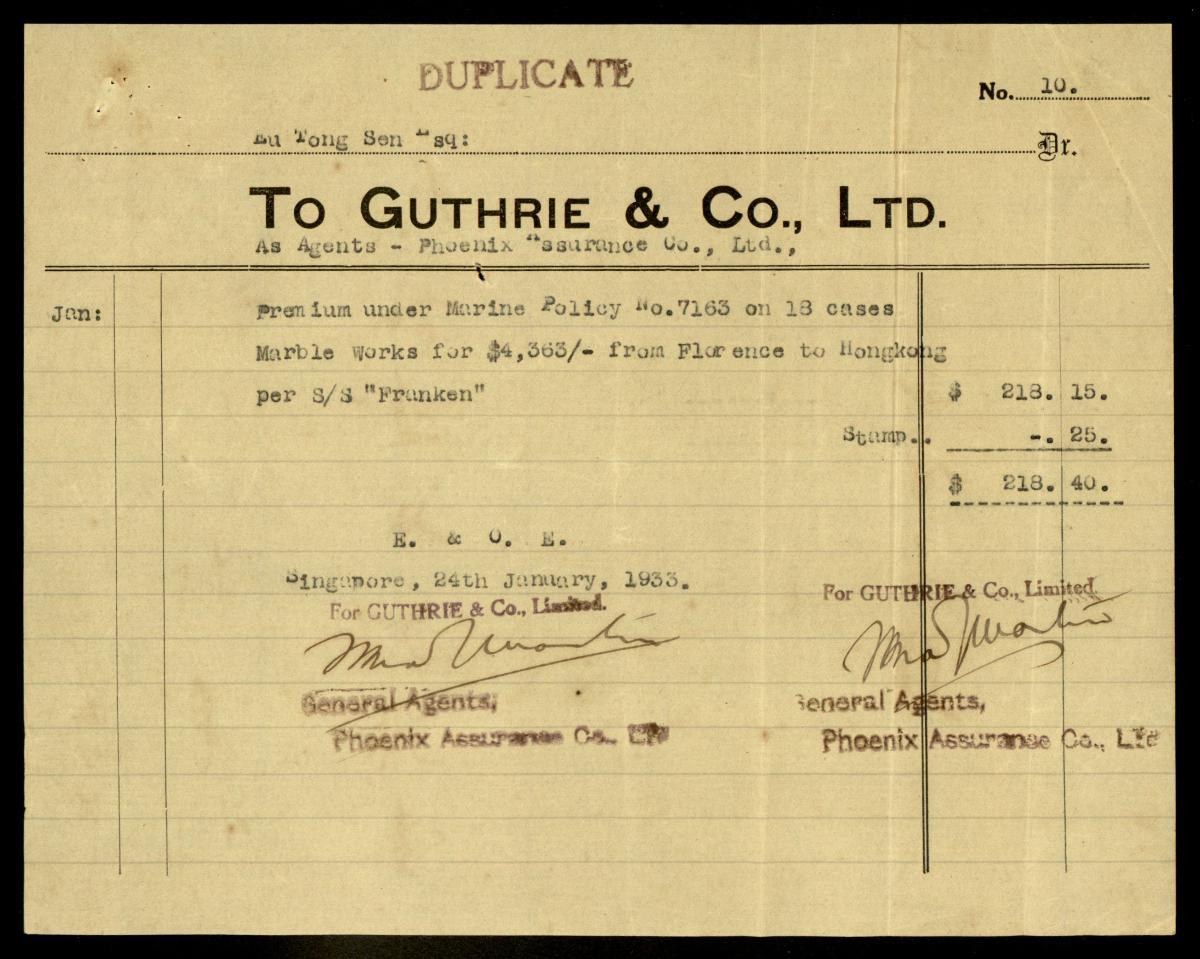 DUPLICATE
No. 10.
Eu Tong Sen Esq: Dr.
TO GUTHRIE & CO., LTD.
As Agents - Phoenix Assurance Co., Ltd.,
Jan: Premium under Marine Policy No.7163 on 18 cases
Marble Works for $4,363/- from Florence to Hongkong
per S/S "Franken" $ 218. 15.
Stamp.. -. 25.
$ 218. 40.
E. & O. E.
Singapore, 24th January, 1933.
For GUTHRIE & Co., Limited.
General Agents,
Phoenix Assurance Co., Ltd
For GUTHRIE & Co., Limited.
General Agents,
Phoenix Assurance Co., Ltd